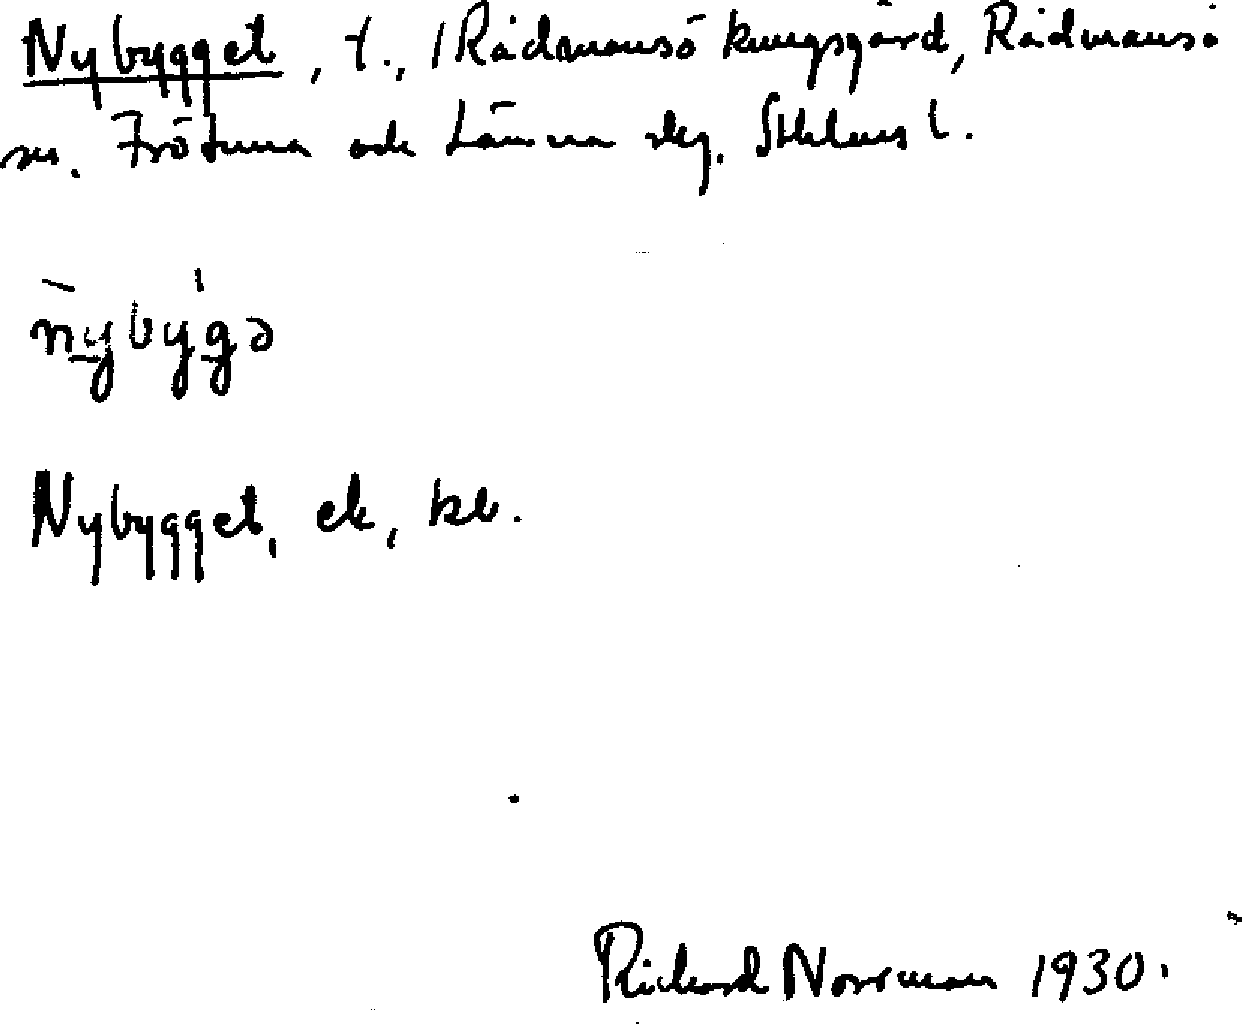 Nybygget, t., /Rådmansö kungsgård, Rådmansö
sn. Frötuna och Länna skg. Sthlms l.
nybygə
Nybygget, ek, kb.
Richard Norrman 1930.